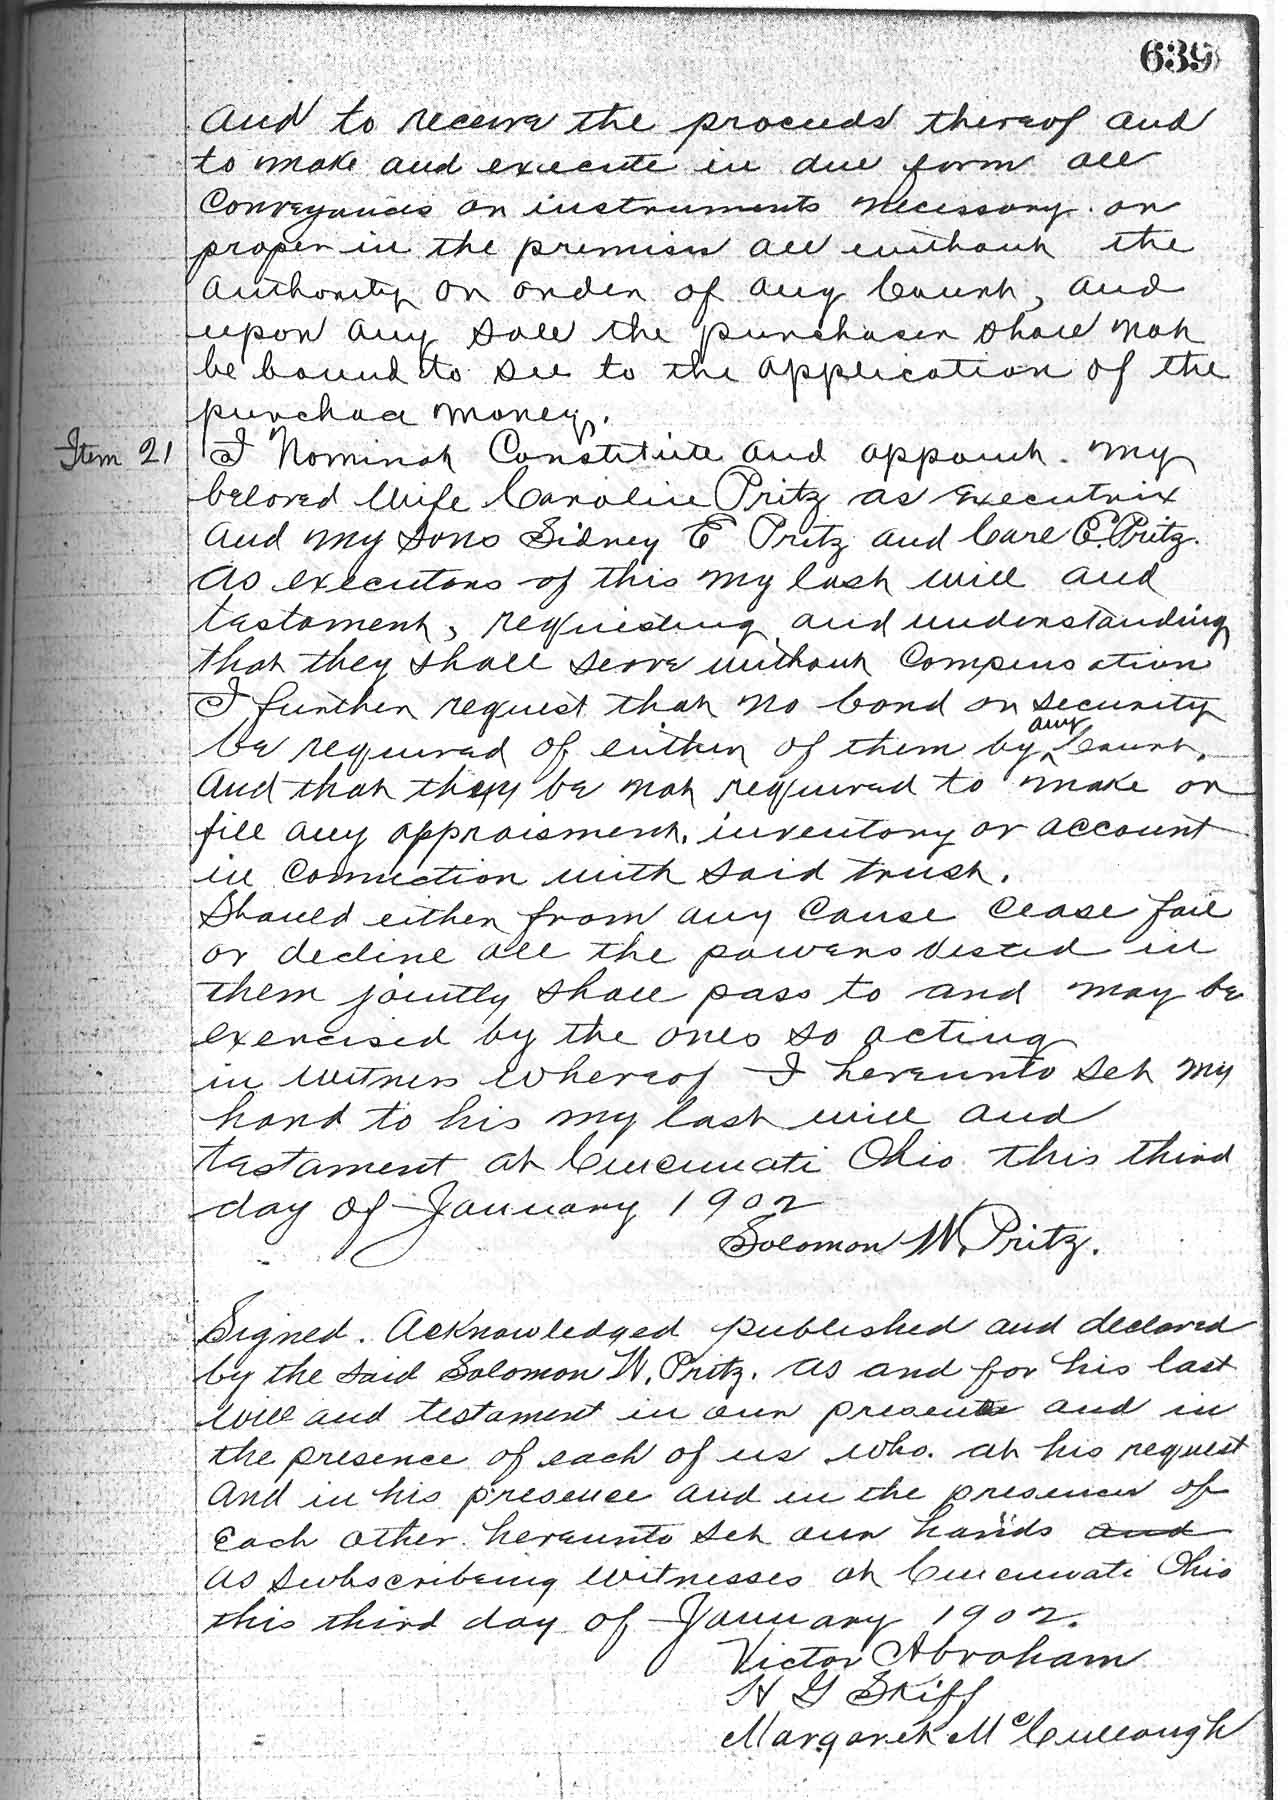 639
and to receive the proceeds thereof and
to make and execute in due form all
Conveyances or instruments necessary or
proper in the premises all without the
authority or order of any Court, and
upon any sale the purchaser shall not
be bound to see to the application of the
purchase money.
Item 21 I Nominate Constitute and appoint my
beloved Wife Caroline Pritz as executrix
and my sons Sidney E Pritz and Carl E. Pritz.
as executors of this my last will and
testament, requesting and understanding
that they shall serve without compensation
I further request that no bond or security
be required of either of them by any Court.
and that they be not required to make or
fill any appraisment, inventory or account
in connection with said trust.
Should either from any cause cease fail
or decline all the powers vested in
them jointly shall pass to and may be
exercised by the ones so acting
in witness whereof I hereunto set my
hand to his my last will and
testament at Cincinnati Ohio this third
day of January 1902
Solomon W. Pritz.
Signed. Acknowledged published and declared
by the said Solomon W. Pritz. as and for his last
Will and testament in our presence and in
the presence of each of us who. at his request
and in his presence and in the presence of
each other hereunto set our hands and
as subscribeing witnesses at Cincinnati Ohio
this third day of January 1902.
Victor Abraham
H G Skiff
Margaret McCullough